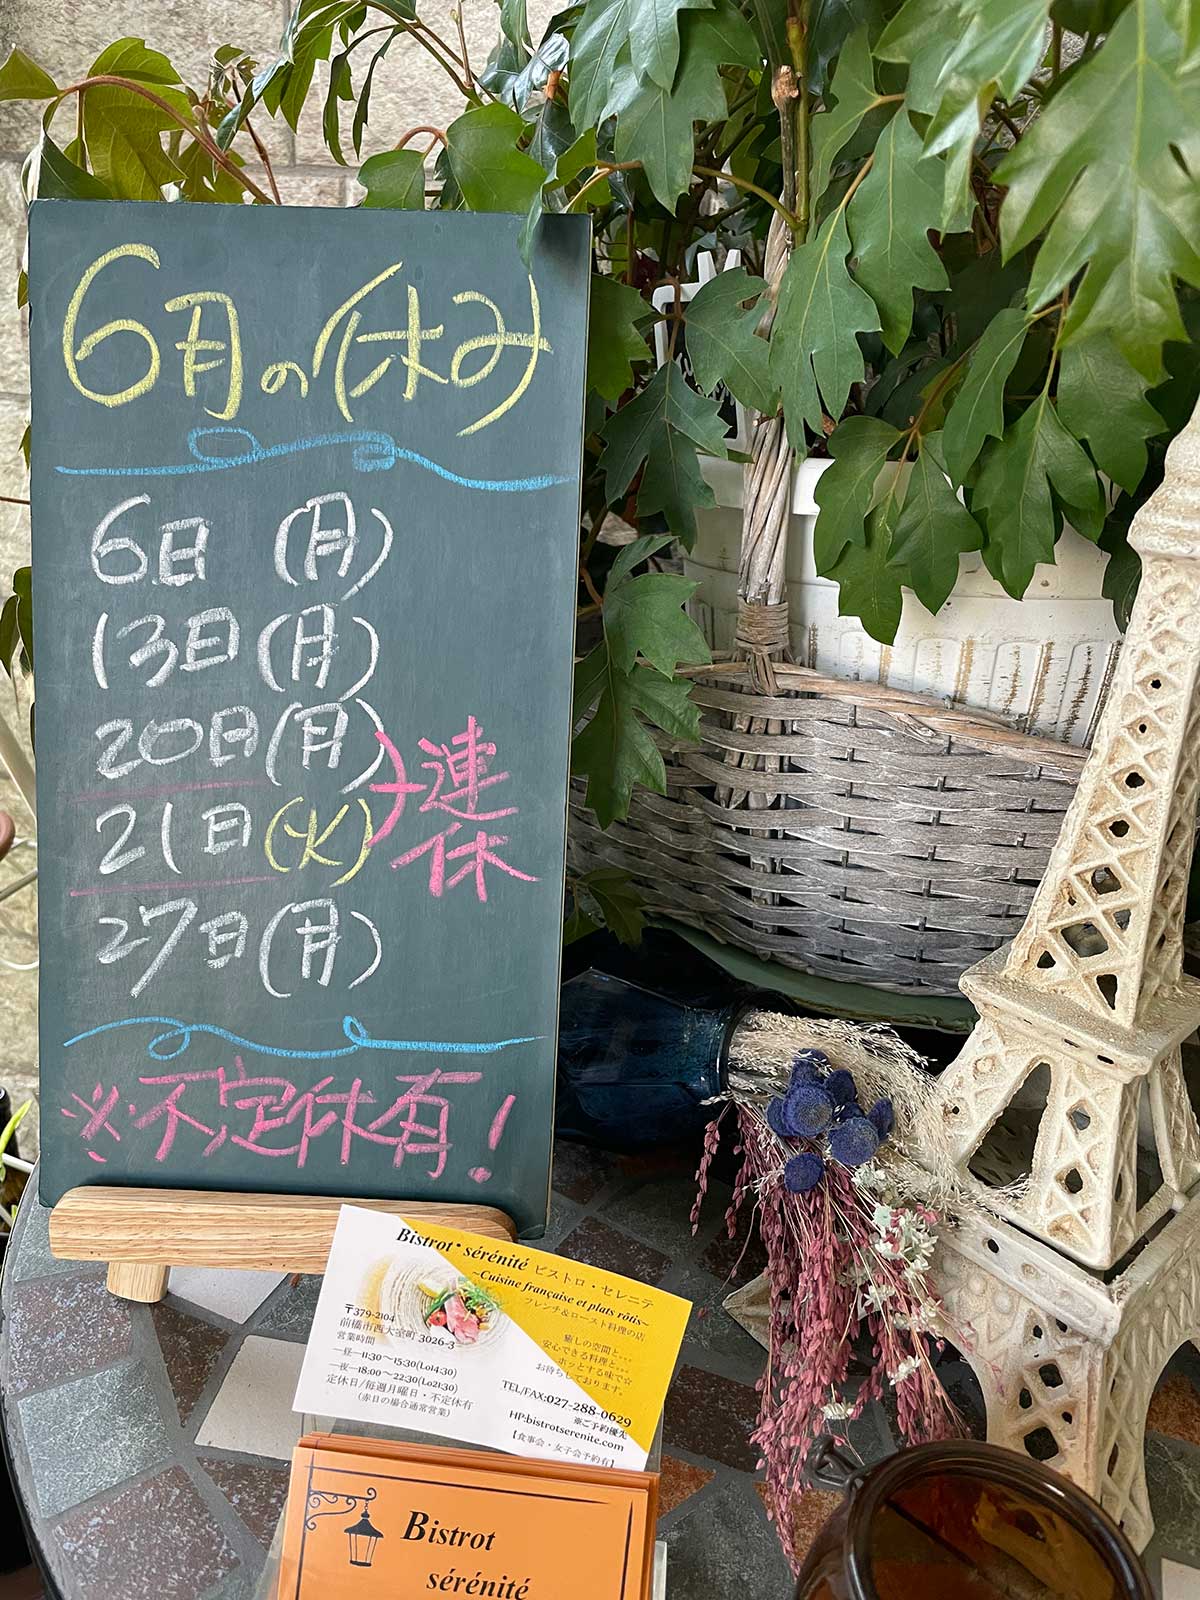 6月の休み
6日 (月)
13日 (月)
20日 (月)
21日 (火)
連休
27日 (月)
※不定休有!
Bistrot・sérénité ビストロ・セレニテ
~Cuisine française et plats rôtis~
フレンチ&ロースト料理の店
〒379-2104
前橋市西大室町 3026-3
営業時間
―昼―11:30～15:30(Lo14:30)
―夜―18:00～22:30(Lo21:30)
定休日/毎週月曜日・不定休有
(赤日の場合通常営業)
癒しの空間と…
安心できる料理と…
ホッとする味で☆
お待ちしております。
TEL/FAX:027-288-0629
※ご予約優先
HP:bistrotserenite.com
【食事会・女子会予約有】
Bistrot
sérénité